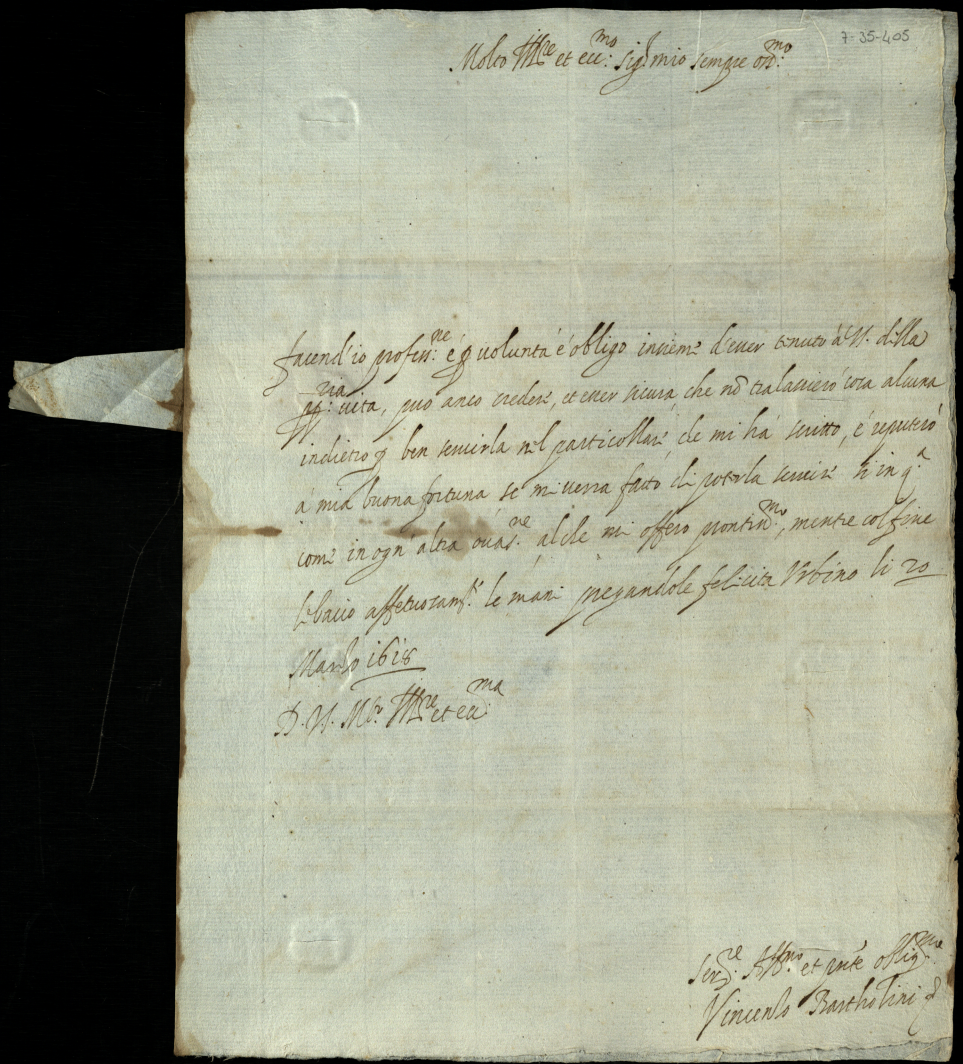 7-35-405
Molto Ill.re et ecc.mo Sig.r mio sempre oss.mo
facend'io profess.ne é p volunta é obligo insieme d'esser tenuto à V. S. della
p.ria vita, puo anco credere, et esser sicura che nō tralascieró cosa alcuna
indietro p ben servirla nel particollare che mi há scritto, é reputeró
á mia buona fortuna se mi verra fatto di poterla servire si in q.a
come in ogn'altra occas.ne al che mi offero prontiss.mo, mentre col fine
le bacio affetuosam.te le mani pregandole felicita Urbino li 20
Marzo 1618
D. V. S. M.to Ill.re et ecc.ma
Ser.re Aff.mo et obblig.mo
Vincenzo Bartholini